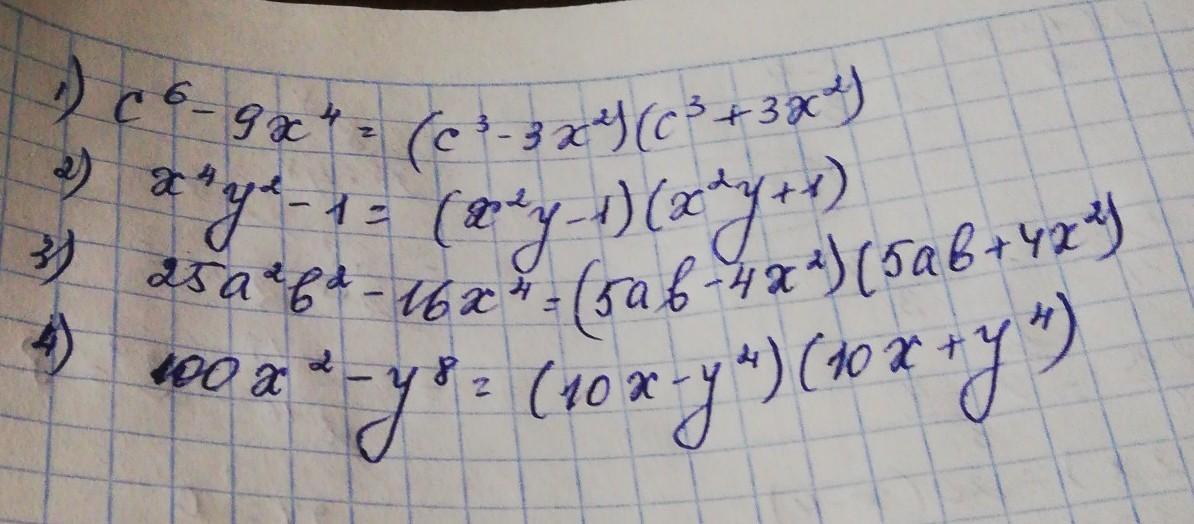 1) c⁶ - 9x⁴ = (c³ - 3x²)(c³ + 3x²)
2) x⁴y² - 1 = (x²y - 1)(x²y + 1)
3) 25a²b² - 16x⁴ = (5ab - 4x²)(5ab + 4x²)
4) 100x² - y⁸ = (10x - y⁴)(10x + y⁴)